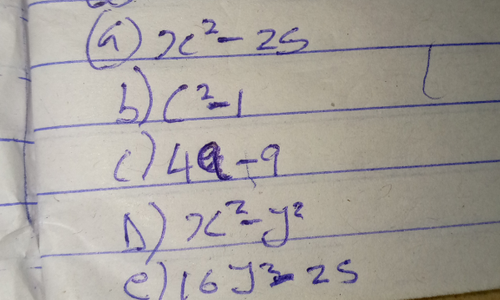 (a) x² - 25
b) c² - 1
c) 4a - 9
D) x² - y²
e) 16y² - 25